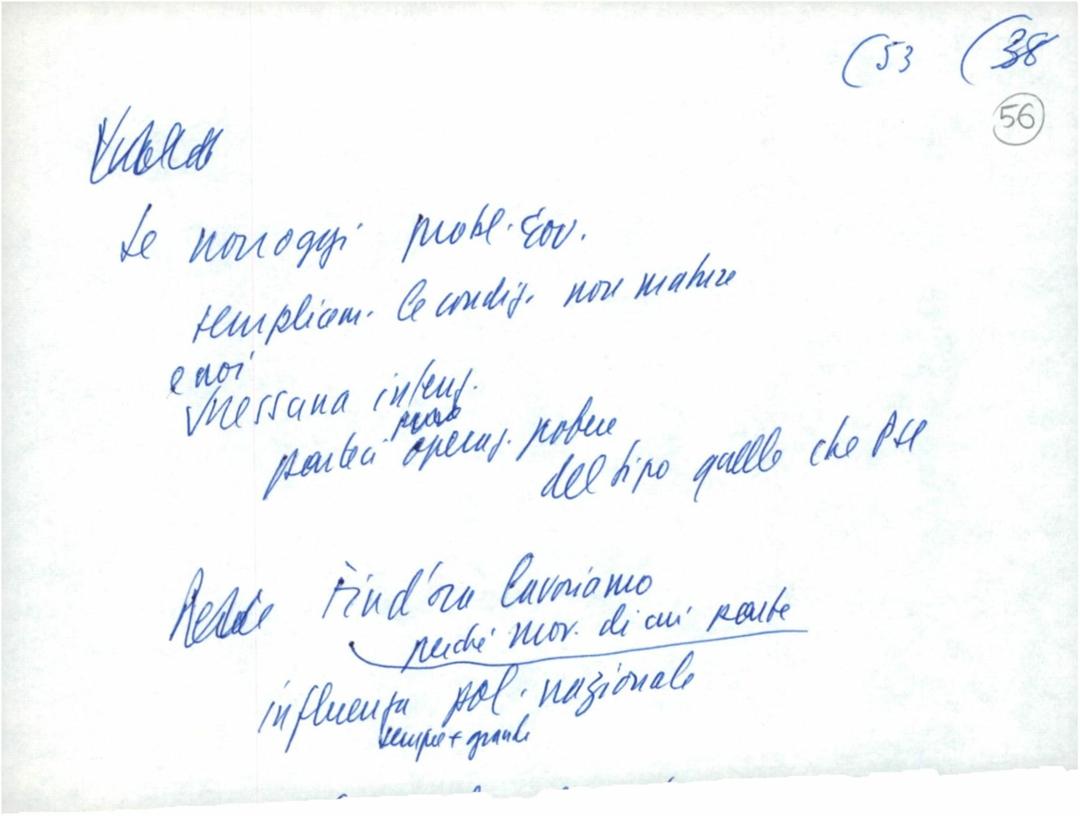 (53 (38
56
se non oggi probl. gov.
semplicem. le condiz. non mature
e noi
nessuna intenz.
portarci operaz. potere
del tipo quello che PSI
Fin d'ora lavoriamo
perché mov. di cui parte
influenza pol. nazionale
sempre + grande